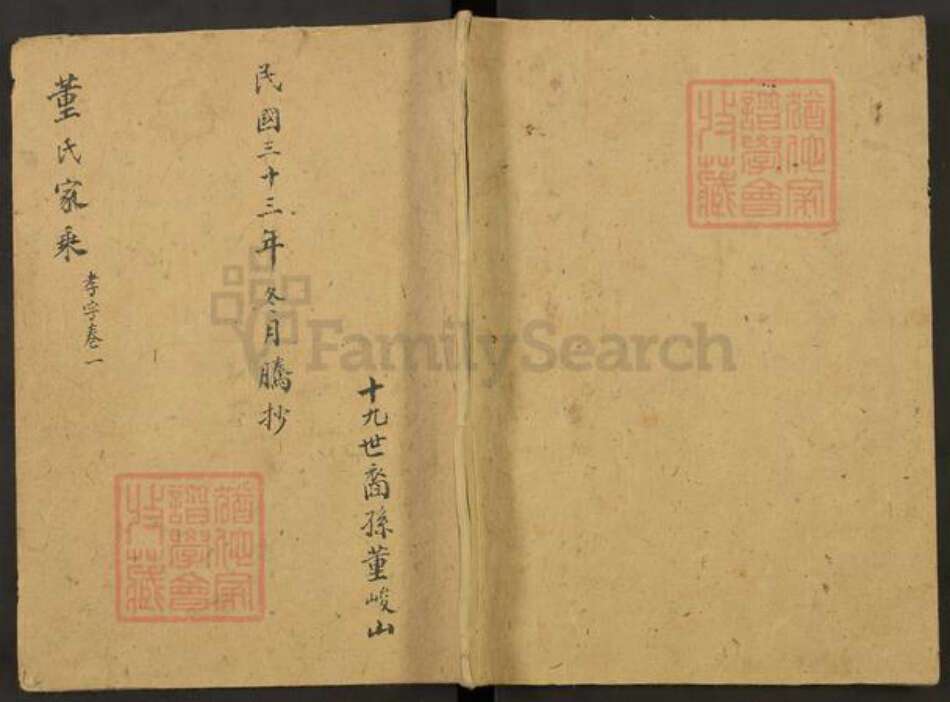 董氏家乘
孝字卷一
民國三十三年冬月騰抄
十九世裔孫董峻山
FamilySearch
猶他家
譜學會
收藏
猶他家
譜學會
收藏